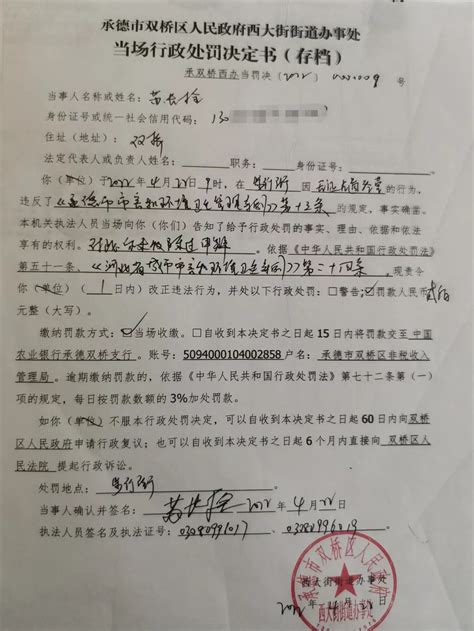 承德市双桥区人民政府西大街街道办事处
当场行政处罚决定书（存档）
承双桥西办当罚决〔2022〕 号
当事人名称或姓名：苗长拴
身份证号或统一社会信用代码：130
住址（地址）：双桥
法定代表人或负责人姓名： 职务： 身份证号：
你（单位）于2022年4月22日9时，在 因 的行为，
违反了《承德市市容和环境卫生管理条例》第十三条 的规定，事实确凿。
本机关执法人员当场向你（你们）告知了给予行政处罚的事实、理由、依据和依法
享有的权利。 依据《中华人民共和国行政处罚法》
第五十一条、《河北省城市市容和环境卫生条例》第二十四条，现责令
你（单位）（1）日内改正违法行为，并处以下行政处罚：□警告；☑罚款人民币贰佰
元整（大写）。
缴纳罚款方式：☑当场收缴。□自收到本决定书之日起 15 日内将罚款交至 中国
农业银行承德双桥支行。账号：5094000104002858 户名：承德市双桥区非税收入
管理局。逾期缴纳罚款的，依据《中华人民共和国行政处罚法》第七十二条第（一）
项的规定，每日按罚款数额的 3%加处罚款。
如你（单位）不服本行政处罚决定，可以自收到本决定书之日起 60 日内向双桥
区人民政府申请行政复议；也可以自收到本决定书之日起 6 个月内直接向 双桥区人
民法院 提起行政诉讼。
处罚地点：
当事人确认并签名：苗长拴 2022年4月22
执法人员签名及执法证号：03080991017、03080996019
承德市双桥区人民政府
西大街街道办事处
西大街街道办事处
2022年4月22日